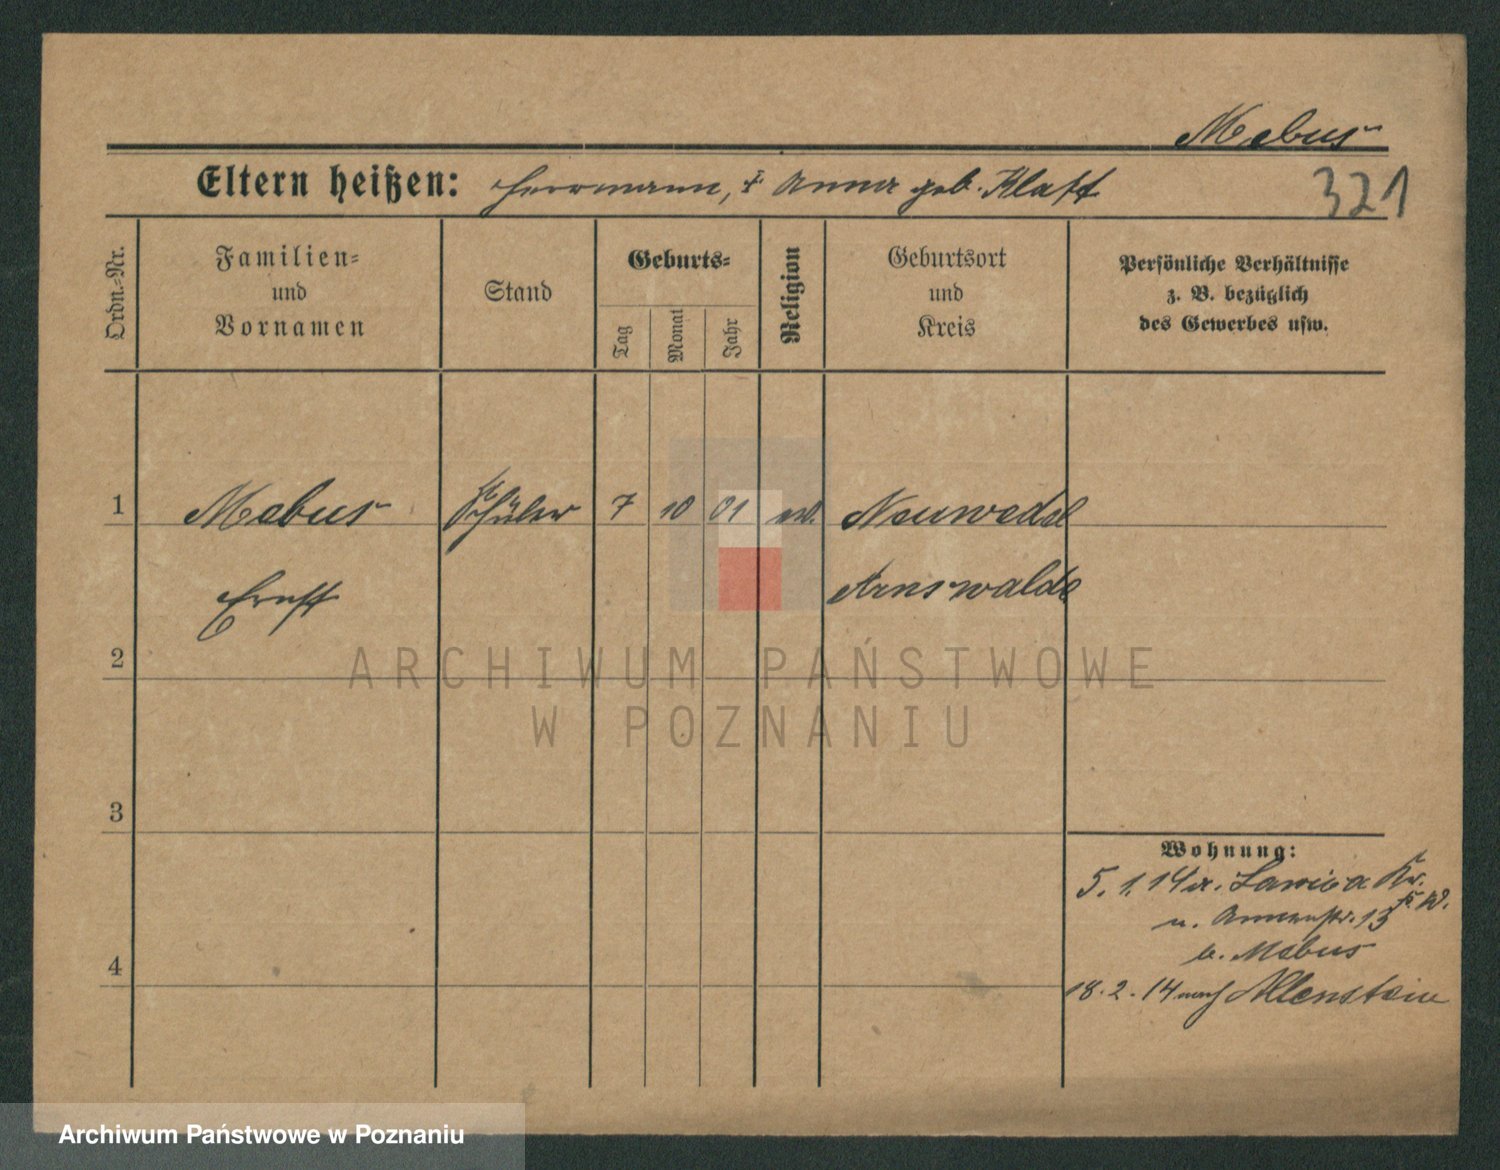 Mebus
Eltern heißen: Herrmann, & Anna geb. Klatt
321
Ordn.-Nr.
Familien-
und
Vornamen
Stand
Geburts-
Tag
Monat
Jahr
Religion
Geburtsort
und
Kreis
Persönliche Verhältnisse
z. B. bezüglich
des Gewerbes usw.
1 Mebus Schüler 7 10 01 ev. Neuwedel
Ernst Arnswalde
2
3
4
Wohnung:
5. 1. 14 Lawica Kr.
n. Annenstr. 13
b. Mebus
18. 2. 14 nach Allenstein
ARCHIWUM PAŃSTWOWE
W POZNANIU
Archiwum Państwowe w Poznaniu